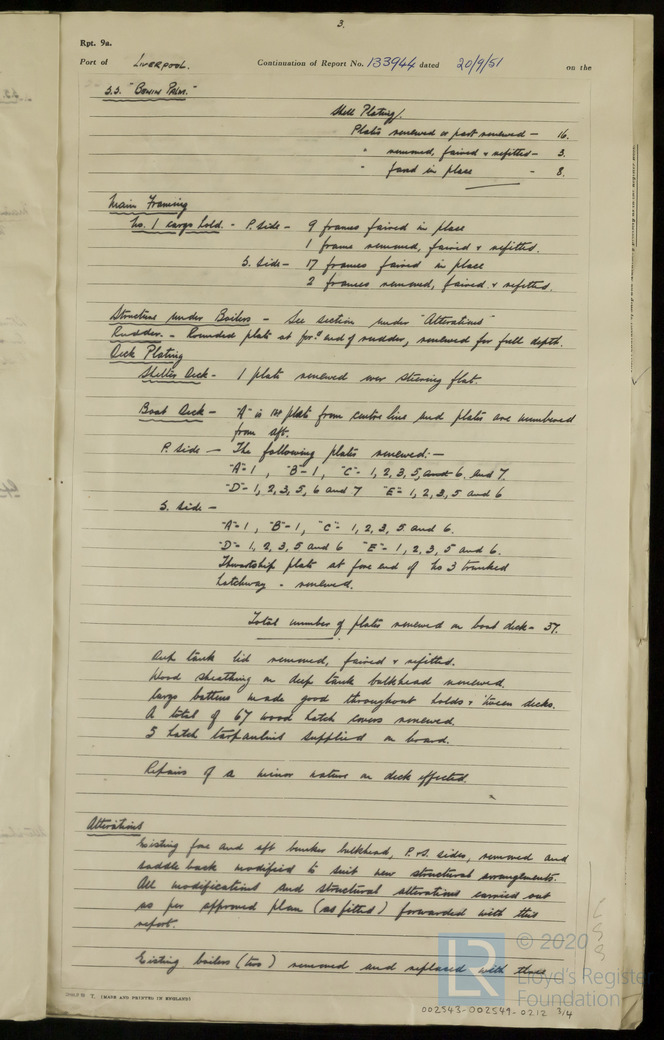 3.
Rpt. 9a.
Port of LIVERPOOL. Continuation of Report No. 133944 dated 20/9/51 on the
S.S. "Benin Palm."
Shell Plating/
Plates renewed or part renewed — 16.
" removed, faired & refitted — 3.
" faired in place — 8.
Main Framing
No. 1 cargo hold. - P. side — 9 frames faired in place
1 frame removed, faired & refitted.
S. side — 17 frames faired in place
2 frames removed, faired & refitted.
Structure under Boilers — See section under "Alterations"
Rudder. — Rounded plate at for'd end of rudder, renewed for full depth.
Deck Plating
Shelter Deck - 1 plate renewed over steering flat.
Boat Deck — "A" is 1st plate from centre line and plates are numbered
from aft.
P. side — The following plates renewed: —
"A" - 1 , "B" - 1 , "C" - 1, 2, 3, 5, 6. and 7.
"D" - 1, 2, 3, 5, 6 and 7 "E" - 1, 2, 3, 5 and 6
S. side —
"A" - 1 , "B" - 1 , "C" - 1, 2, 3, 5 and 6.
"D" - 1, 2, 3, 5 and 6 "E" - 1, 2, 3, 5 and 6.
Thwartship plate at fore end of No 3 trunked
hatchway - renewed.
Total number of plates renewed on boat deck - 37.
Deep tank lid removed, faired & refitted.
Wood sheathing on deep tank bulkhead renewed.
Cargo battens made good throughout holds & 'tween decks.
A total of 67 wood hatch covers renewed.
5 hatch tarpaulins supplied on board.
Repairs of a minor nature on deck effected.
Alterations
Existing fore and aft bunker bulkhead, P. & S. sides, removed and
saddle back modified to suit new structural arrangements.
All modifications and structural alterations carried out
as per approved plan (as fitted) forwarded with this
report.
Existing boilers (two) removed and replaced with three
T. (MADE AND PRINTED IN ENGLAND)
LR
© 2020
Lloyd's Register
Foundation
002543-002549-0212 3/4